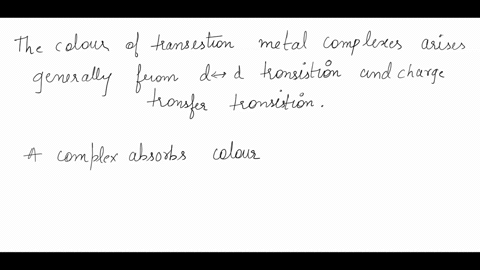 The colour of transestion metal complexes arises
generally from d↔d transistion and charge
transfer transistion.
A complex absorbs colour